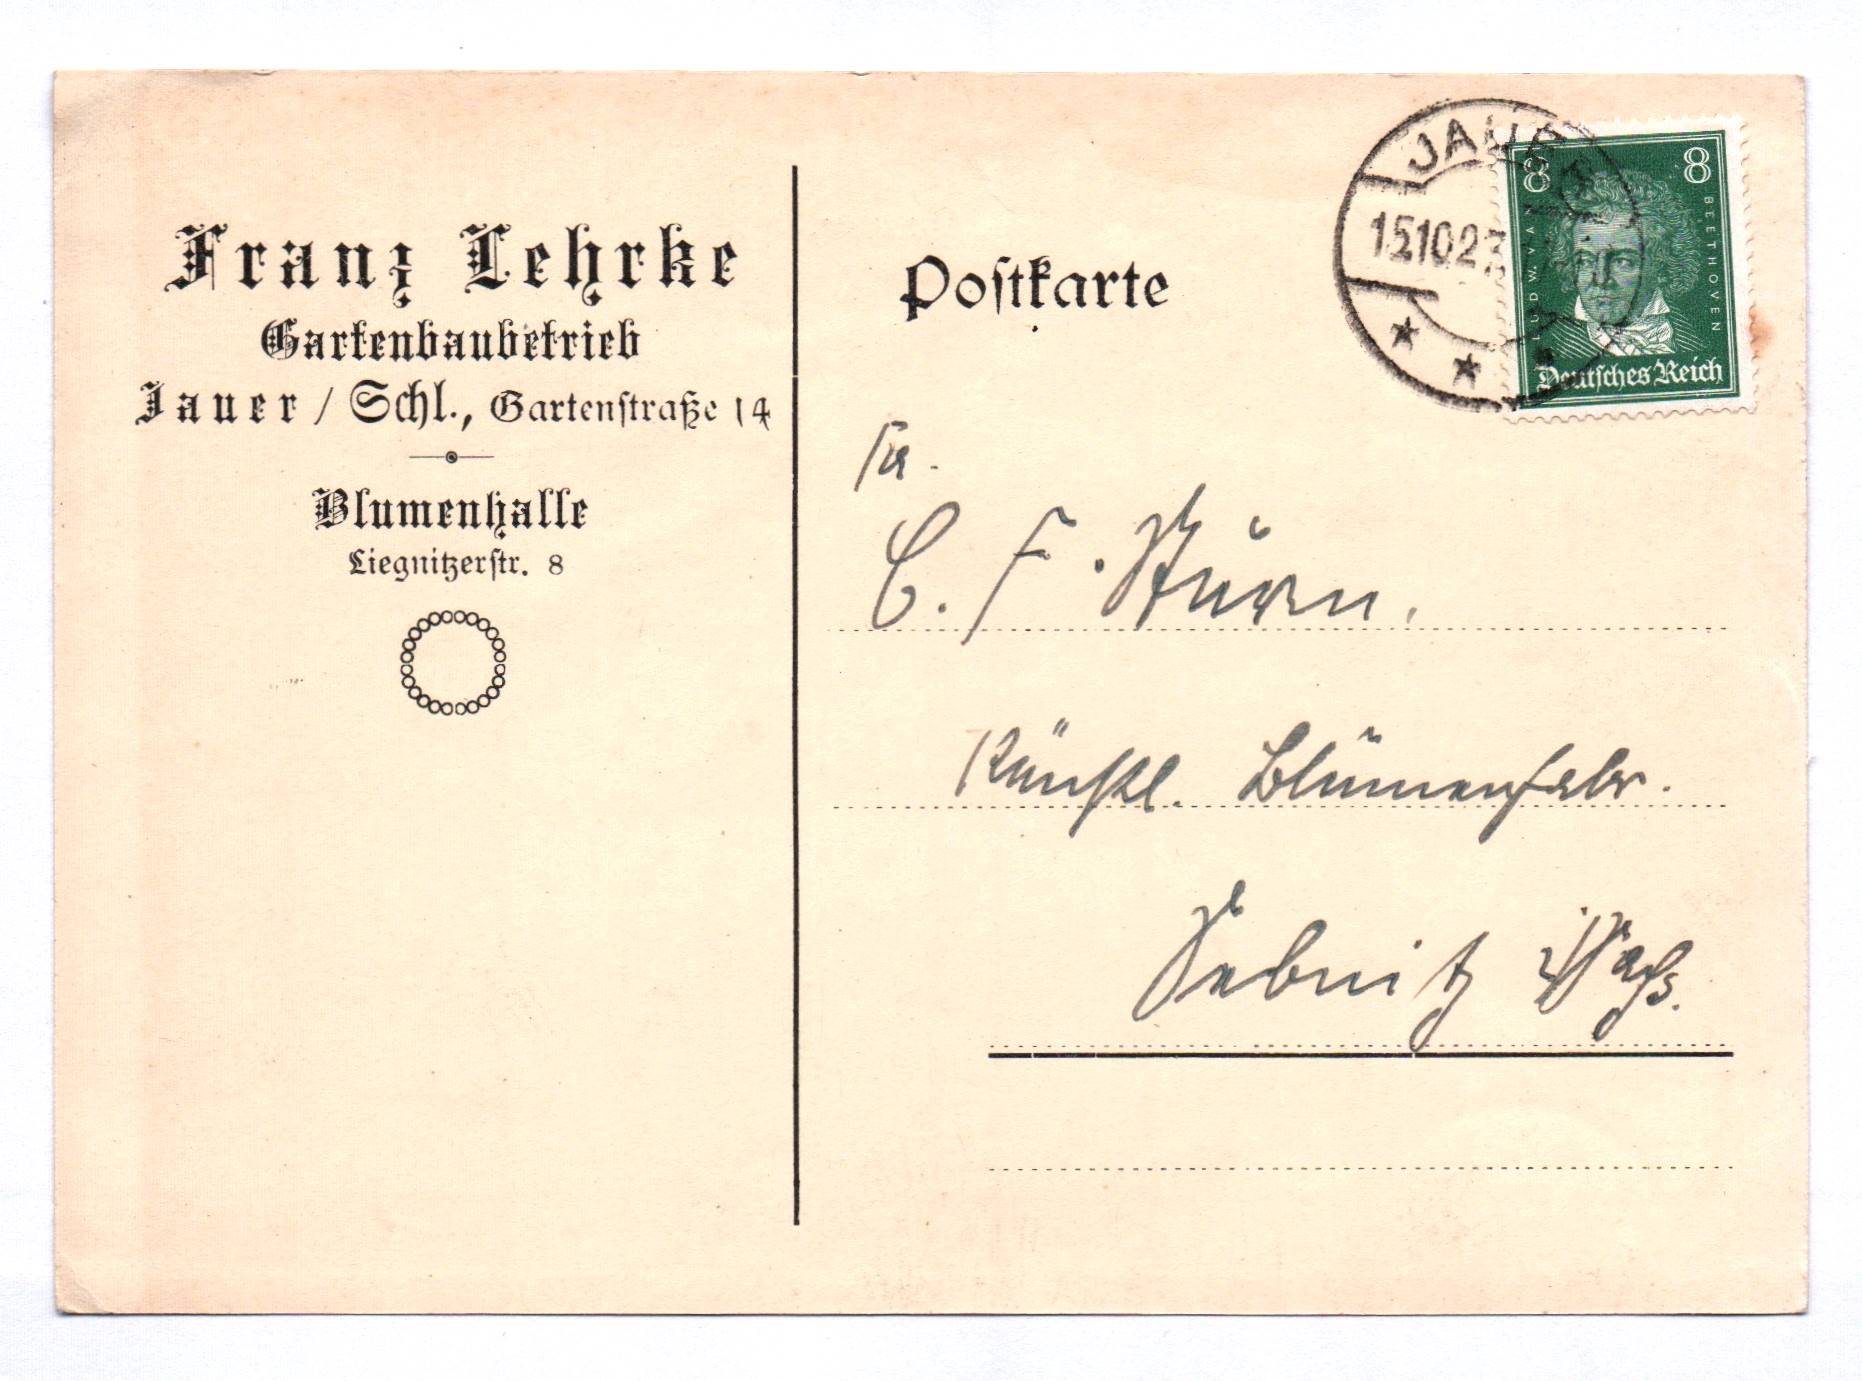 Franz Lehrke
Gartenbaubetrieb
Jauer / Schl., Gartenstraße 14
Blumenhalle
Liegnitzerstr. 8
Postkarte
JAUER
15.10.27
8 8
LUDW. VAN
BEETHOVEN
Deutsches Reich
Fa.
C. F. Sturm.
Künstl. Blumenfabr.
Sebnitz i/Sachs.